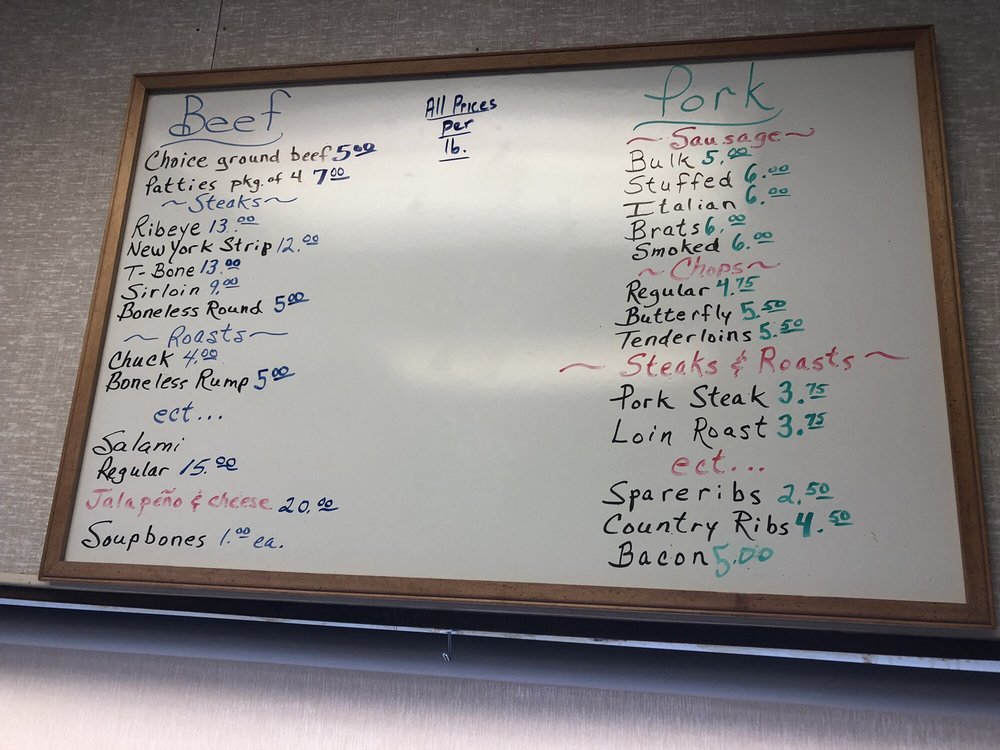 Beef
Choice ground beef 5.00
Patties pkg. of 4 7.00
~ Steaks ~
Ribeye 13.00
New York Strip 12.00
T-Bone 13.00
Sirloin 9.00
Boneless Round 5.00
~ Roasts ~
Chuck 4.00
Boneless Rump 5.00
ect...
Salami
Regular 15.00
Jalapeño & cheese 20.00
Soupbones 1.00 ea.
All Prices
per
lb.
Pork
~ Sausage ~
Bulk 5.00
Stuffed 6.00
Italian 6.00
Brats 6.00
Smoked 6.00
~ Chops ~
Regular 4.75
Butterfly 5.50
Tenderloins 5.50
~ Steaks & Roasts ~
Pork Steak 3.75
Loin Roast 3.75
ect...
Spareribs 2.50
Country Ribs 4.50
Bacon 5.00